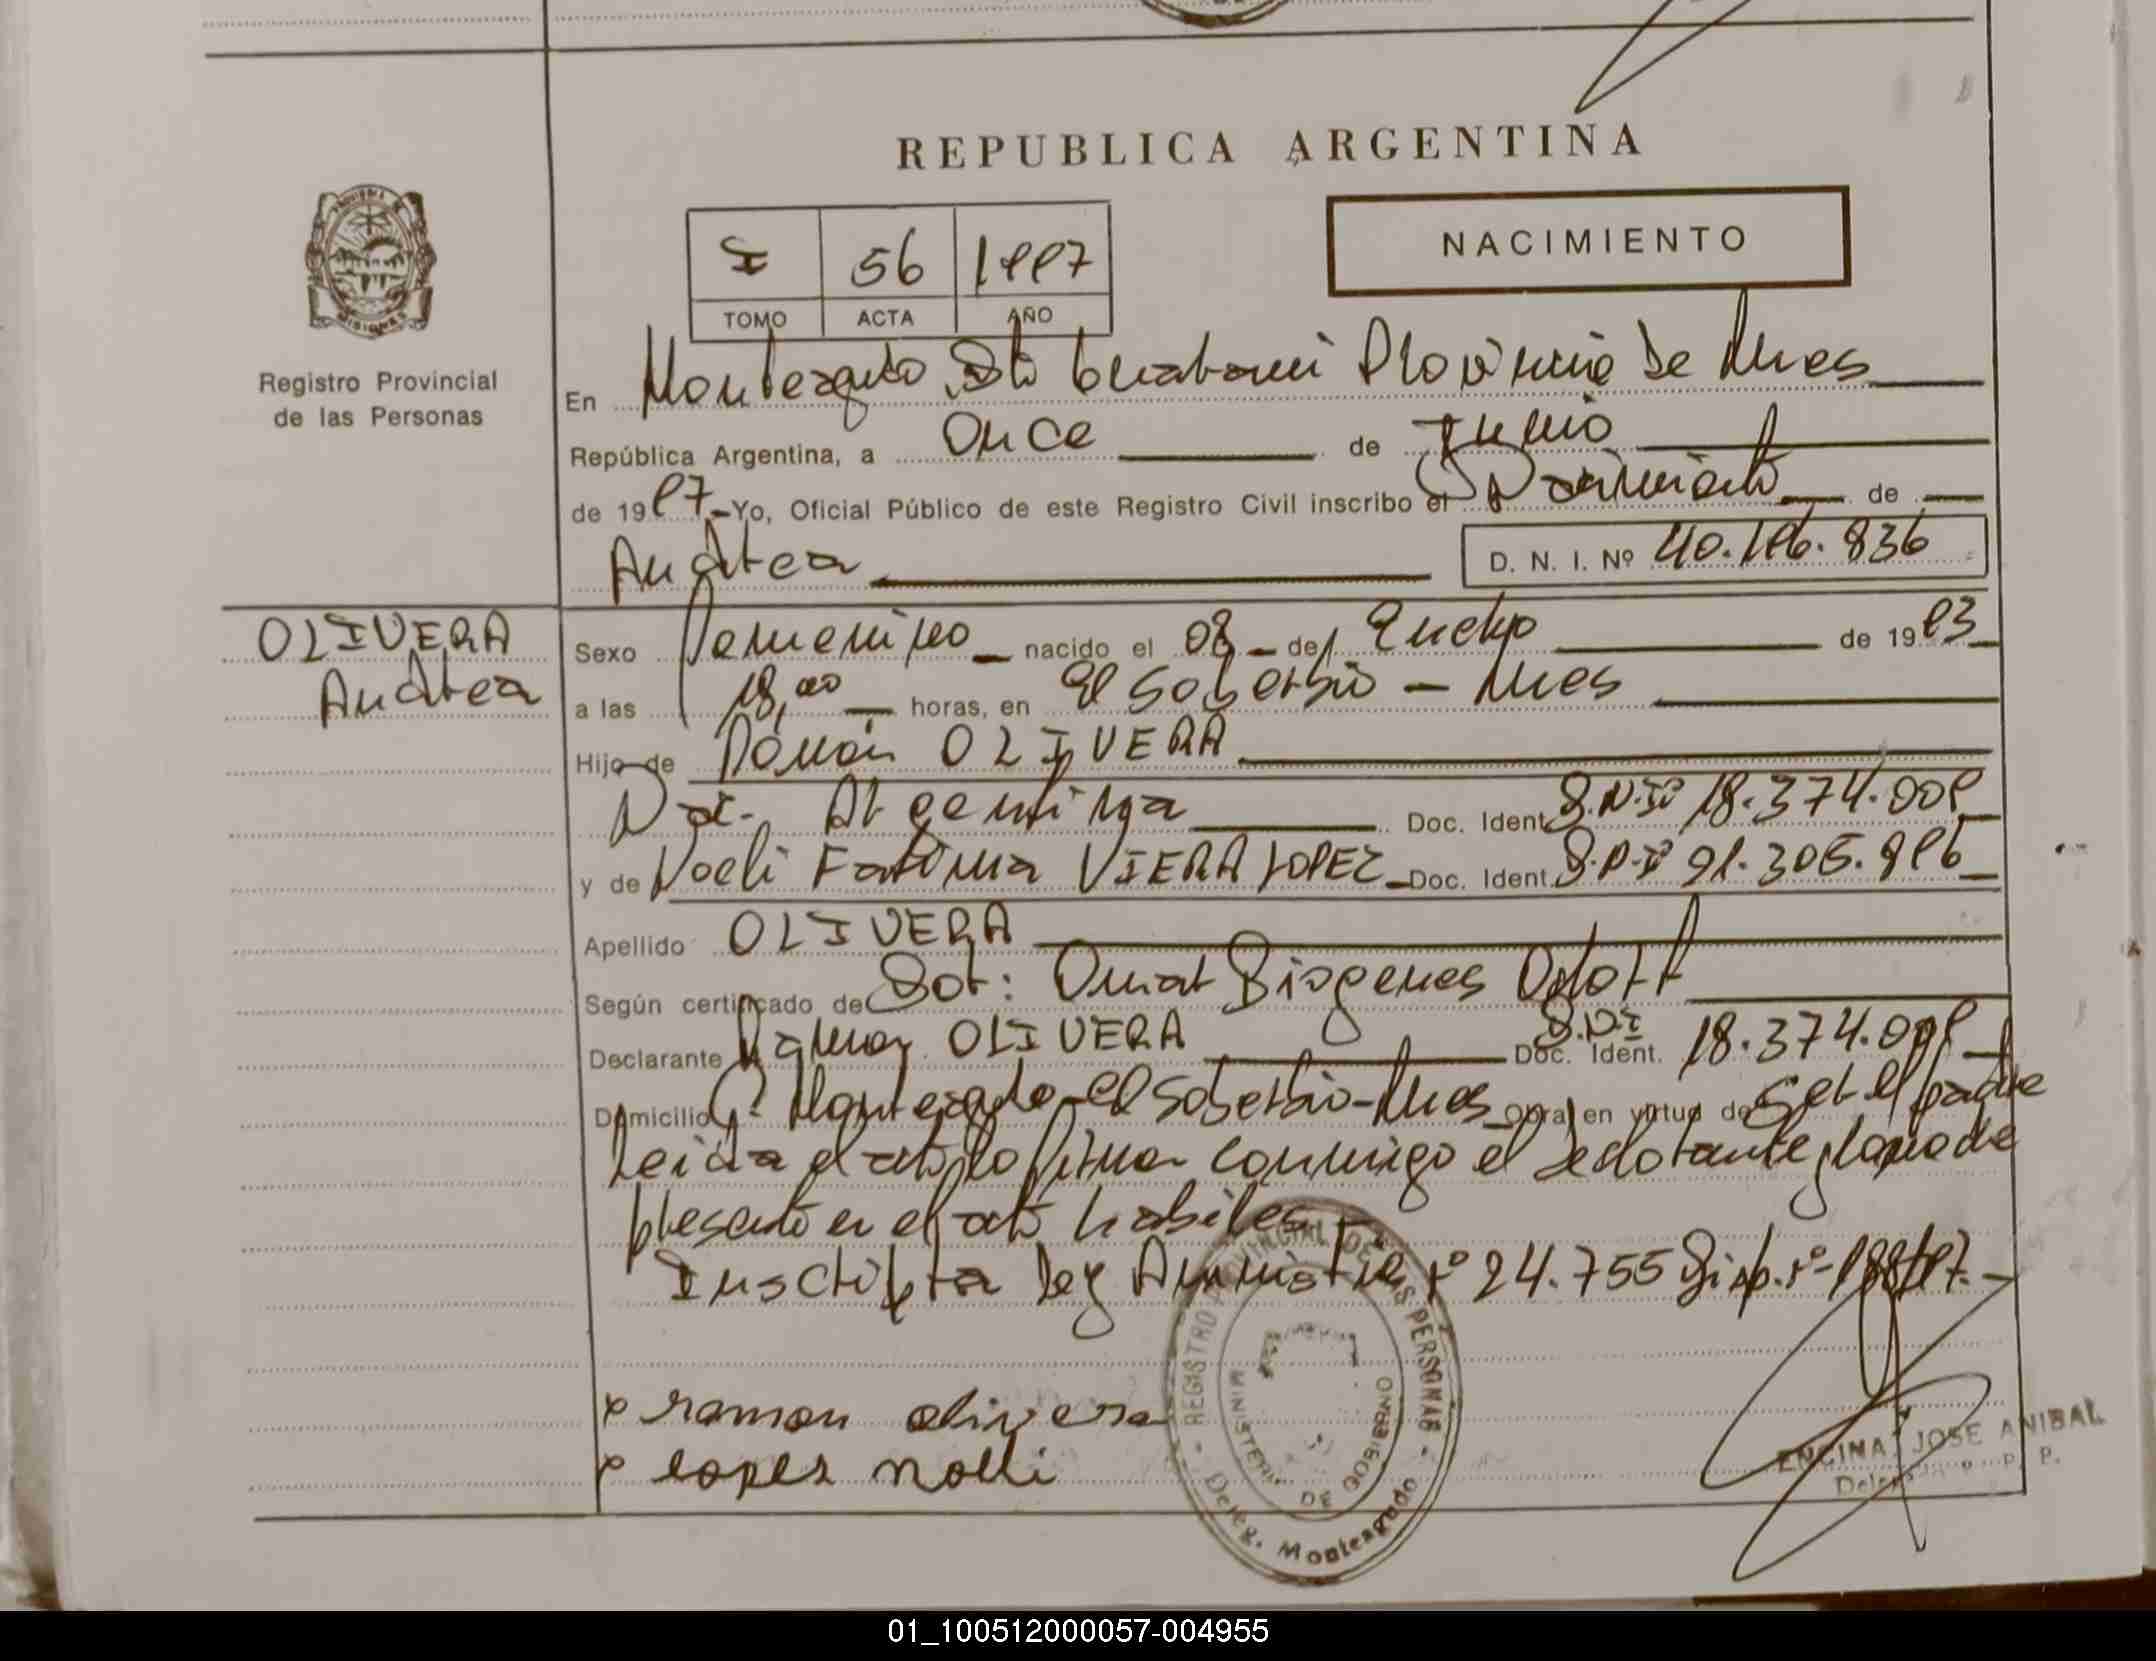 REPUBLICA ARGENTINA
NACIMIENTO
I 56 1997
TOMO ACTA AÑO
Registro Provincial
de las Personas
En Monteagudo Dto Guarani Provincia de Mnes
República Argentina, a Once de Junio
de 1997 Yo, Oficial Público de este Registro Civil inscribo el Nacimiento de
Andrea D. N. I. Nº 40.196.836
OLIVERA
Andrea
Sexo Femenino nacido el 08 de Enero de 1993
a las 18,00 horas, en El Soberbio - Mnes
Hijo de Ramón OLIVERA
Nac. Argentina Doc. Ident. D.N.I 18.374.009
y de Noeli Fatima VIERA LOPEZ Doc. Ident. D.N.I 91.305.996
Apellido OLIVERA
Según certificado de Dor: Omar Diogenes
Declarante Ramon OLIVERA D.N.I Doc. Ident. 18.374.009
Domicilio Monteagudo - El Soberbio - Mnes Obra en virtud de Ser el padre
Leida el acta la firman conmigo el declarante y la madre
presente en el acto habiles
Inscripta Ley Amnistia nº 24.755 Disp. nº
ramon olivera
lopez noeli
REGISTRO PROVINCIAL DE LAS PERSONAS
MINISTERIO DE GOBIERNO
Deleg. Monteagudo
ENCINA JOSE ANIBAL
01_100512000057-004955